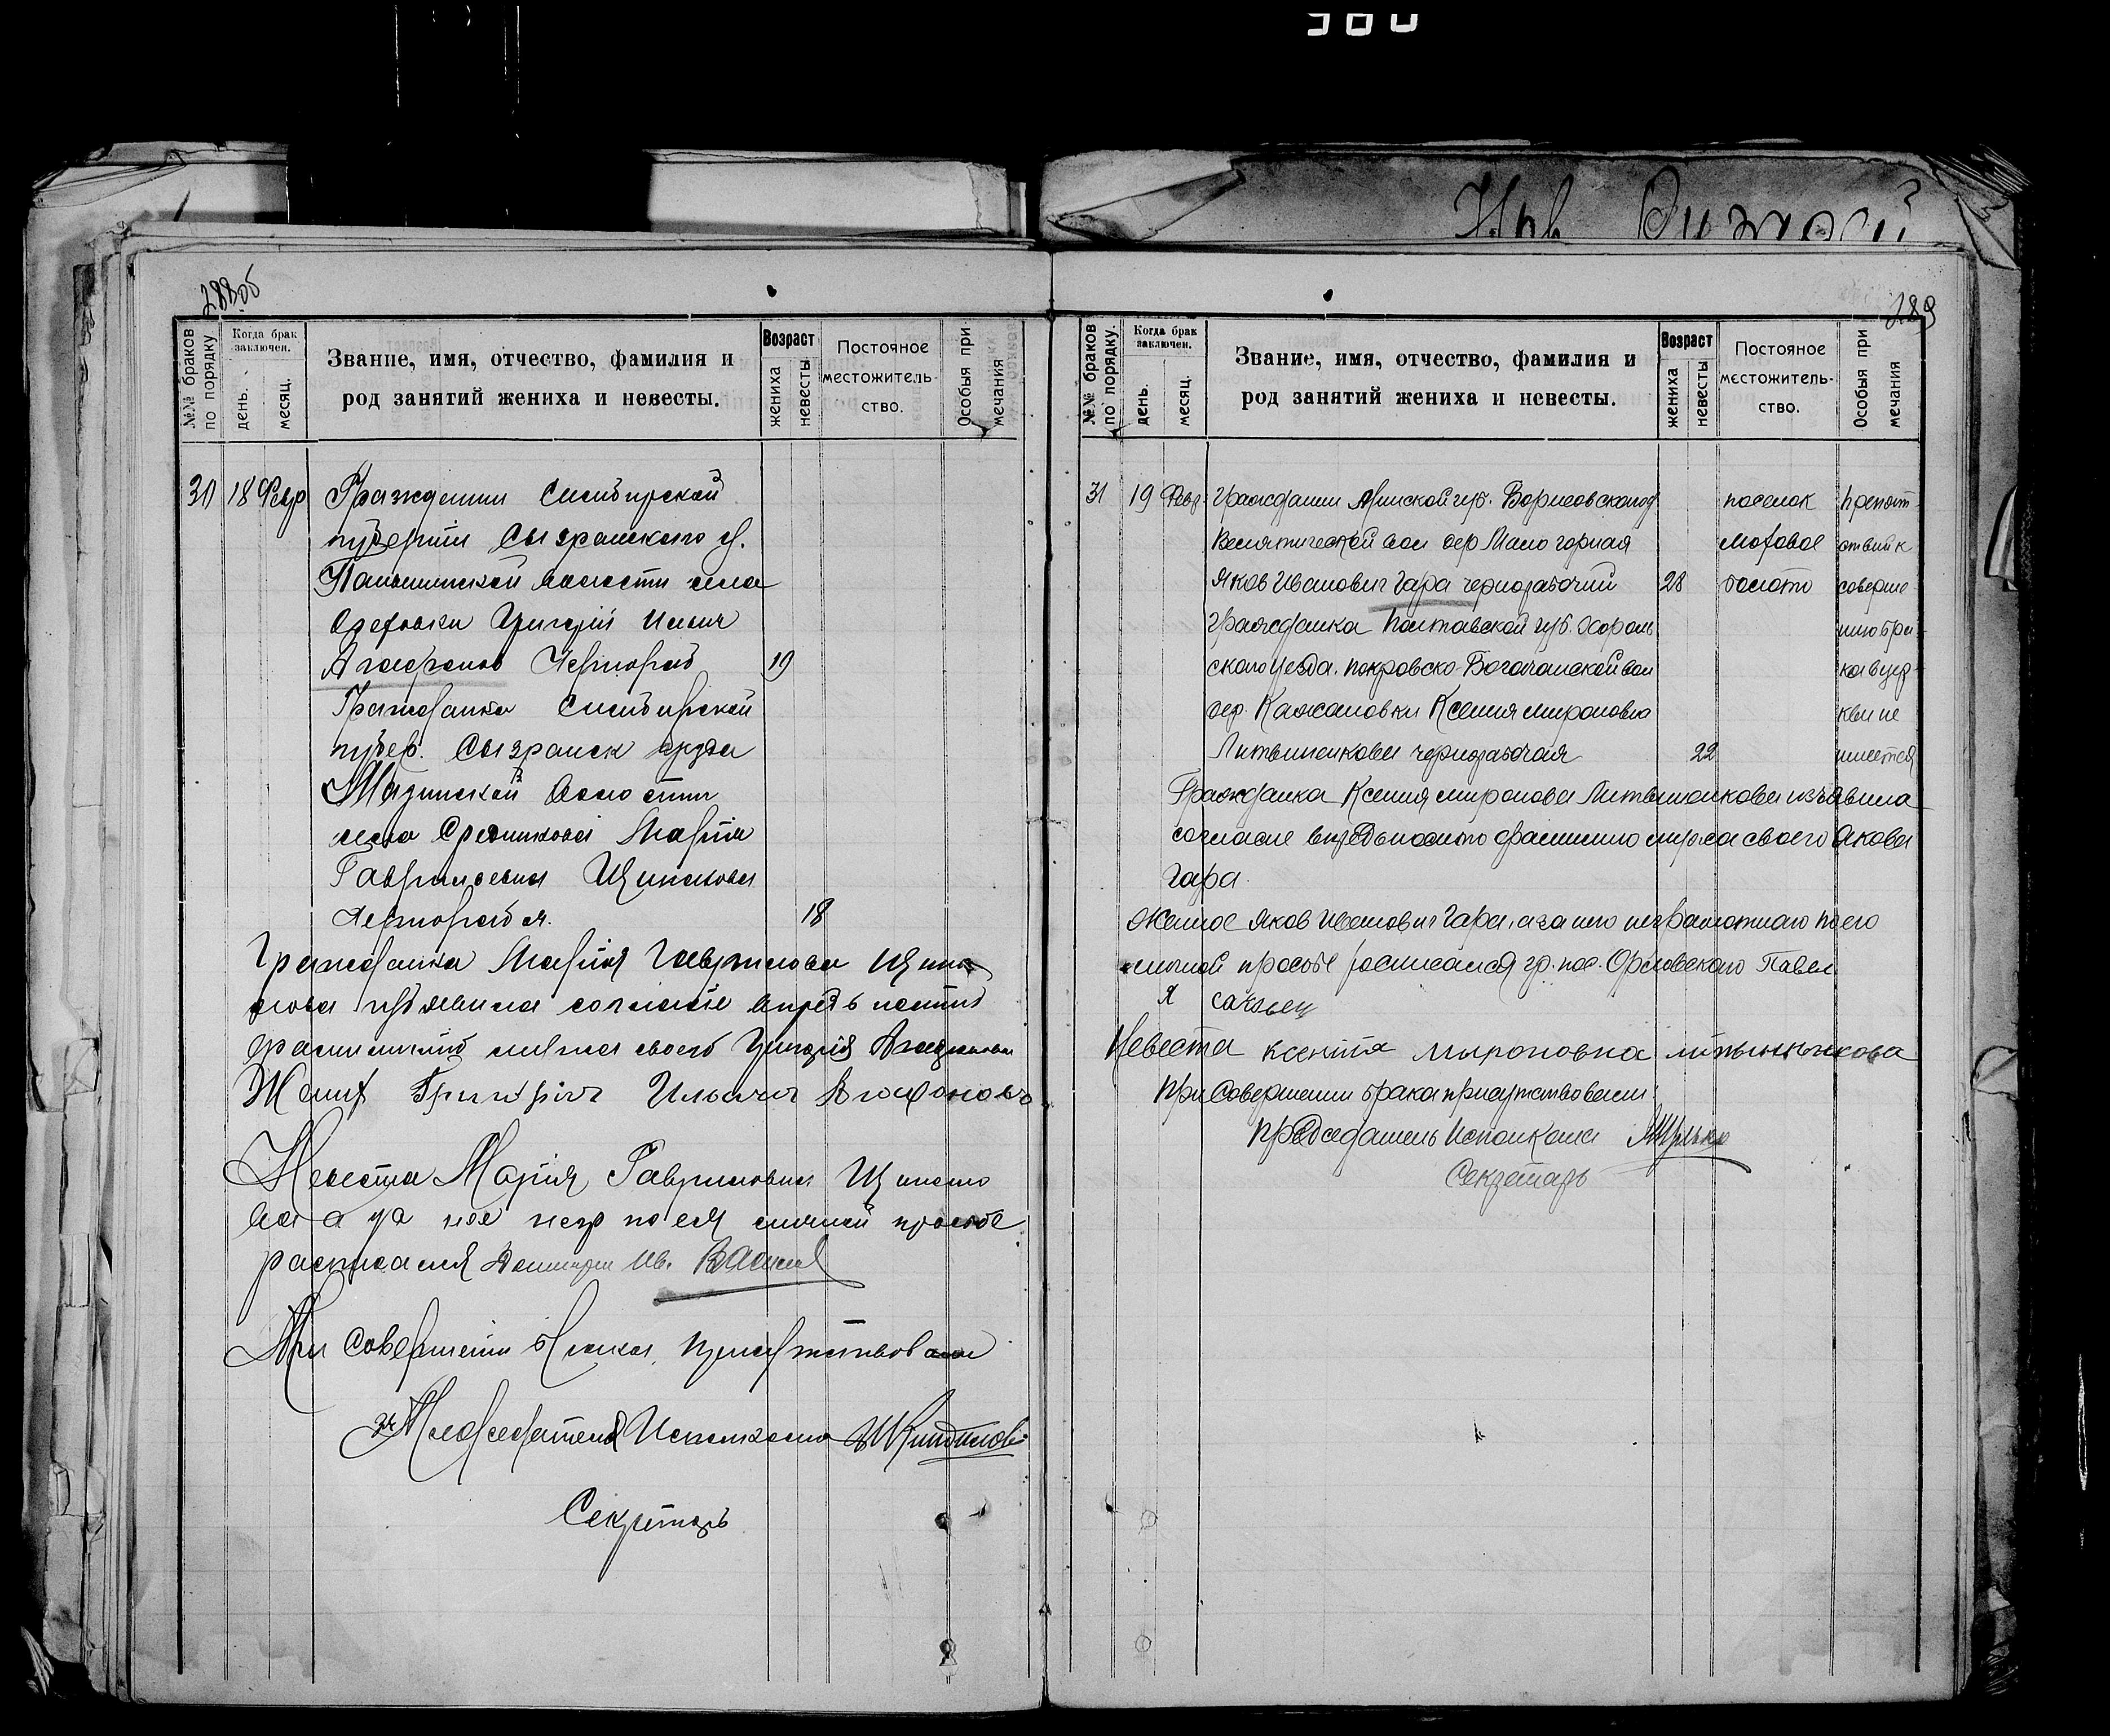 380
288об
№№ браков по порядку.
Когда брак заключен.
день.
месяц.
Звание, имя, отчество, фамилия и
род занятий жениха и невесты.
Возраст
жениха
невесты
Постоянное
местожитель-
ство.
Особыя при
мечания
30 18 Февр Гражданин Симбирской
губернии Сызранского у.
волости села
Григорій Ильич
Агафонов Чернораб 19
Гражданка Симбирской
губер. Сызранск уезда
волости
села Марія
Гавриловна
Чернорабоч. 18
Гражданка Марія Гаврилова
изъявила согласіе впредь
фамилию мужа своего Григорія Агафонова
Жених Григоріи Ильичь Агафоновъ
Невеста Марія Гавриловна
а за нее негр по ея личной просьбе
расписался Ив.
При Совершении брака присутствовали
Председателя Исполкома
Секретарь
Инв Описной
289
№№ браков по порядку.
Когда брак заключен.
день.
месяц.
Звание, имя, отчество, фамилия и
род занятий жениха и невесты.
Возраст
жениха
невесты
Постояное
местожитель-
ство.
Особыя при
мечания
31 19 Февр. Гражданин Минской губ. Борисовского у поселок Препят
вол дер Мало горная моховое ствий к
Яков Иванович Гара чернорабочий 28 болото соверше
Гражданка Полтавской губ. Хороль нию бра
ского уезда. Покровско-Богачанской вол ка в цер
дер. Кажановки Ксения Мироновна кви не
Литвиненкова чернорабочая 22 имеется
Гражданка Ксения Миронова Литвиненкова изъявила
согласие впредь носить фамилию мужа своего Якова
Гара.
Жених Яков Иванович Гара, а за него неграмотнаго по его
личной просьбе росписался гр. пос. Орловскаго Павел
Невеста Ксенія Мыроновна
При Совершении брака присутствовали:
Председатель Исполкома
Секретарь